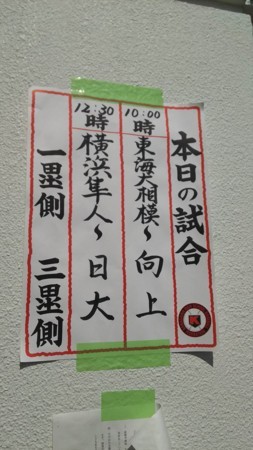 本日の試合
10:00
時 東海大相模〜向上
12:30
時 横浜隼人〜日大
一塁側 三塁側